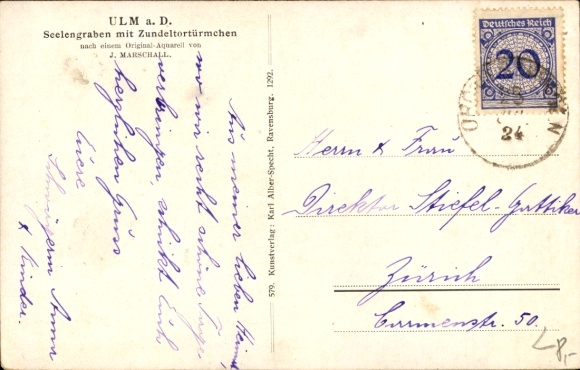 ULM a. D.
Seelengraben mit Zundeltortürmchen
nach einem Original-Aquarell von
J. MARSCHALL.
Aus meiner lieben Heimat
wo wir recht schöne Tage
verbringen, schickt Euch
herzlichen Gruss
Euere
Schwägerin Anna
& Kinder.
579. Kunstverlag: Karl Alber-Specht, Ravensburg. 1292.
Deutsches Reich
20
24
Herrn & Frau
Direktor Stiefel-Gattiker
Zürich
Carmenstr. 50.
8,-